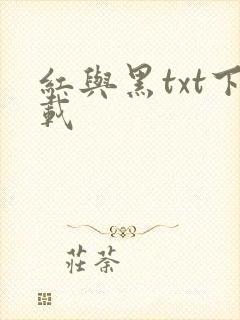 紅與黑txt下
載
莊荼